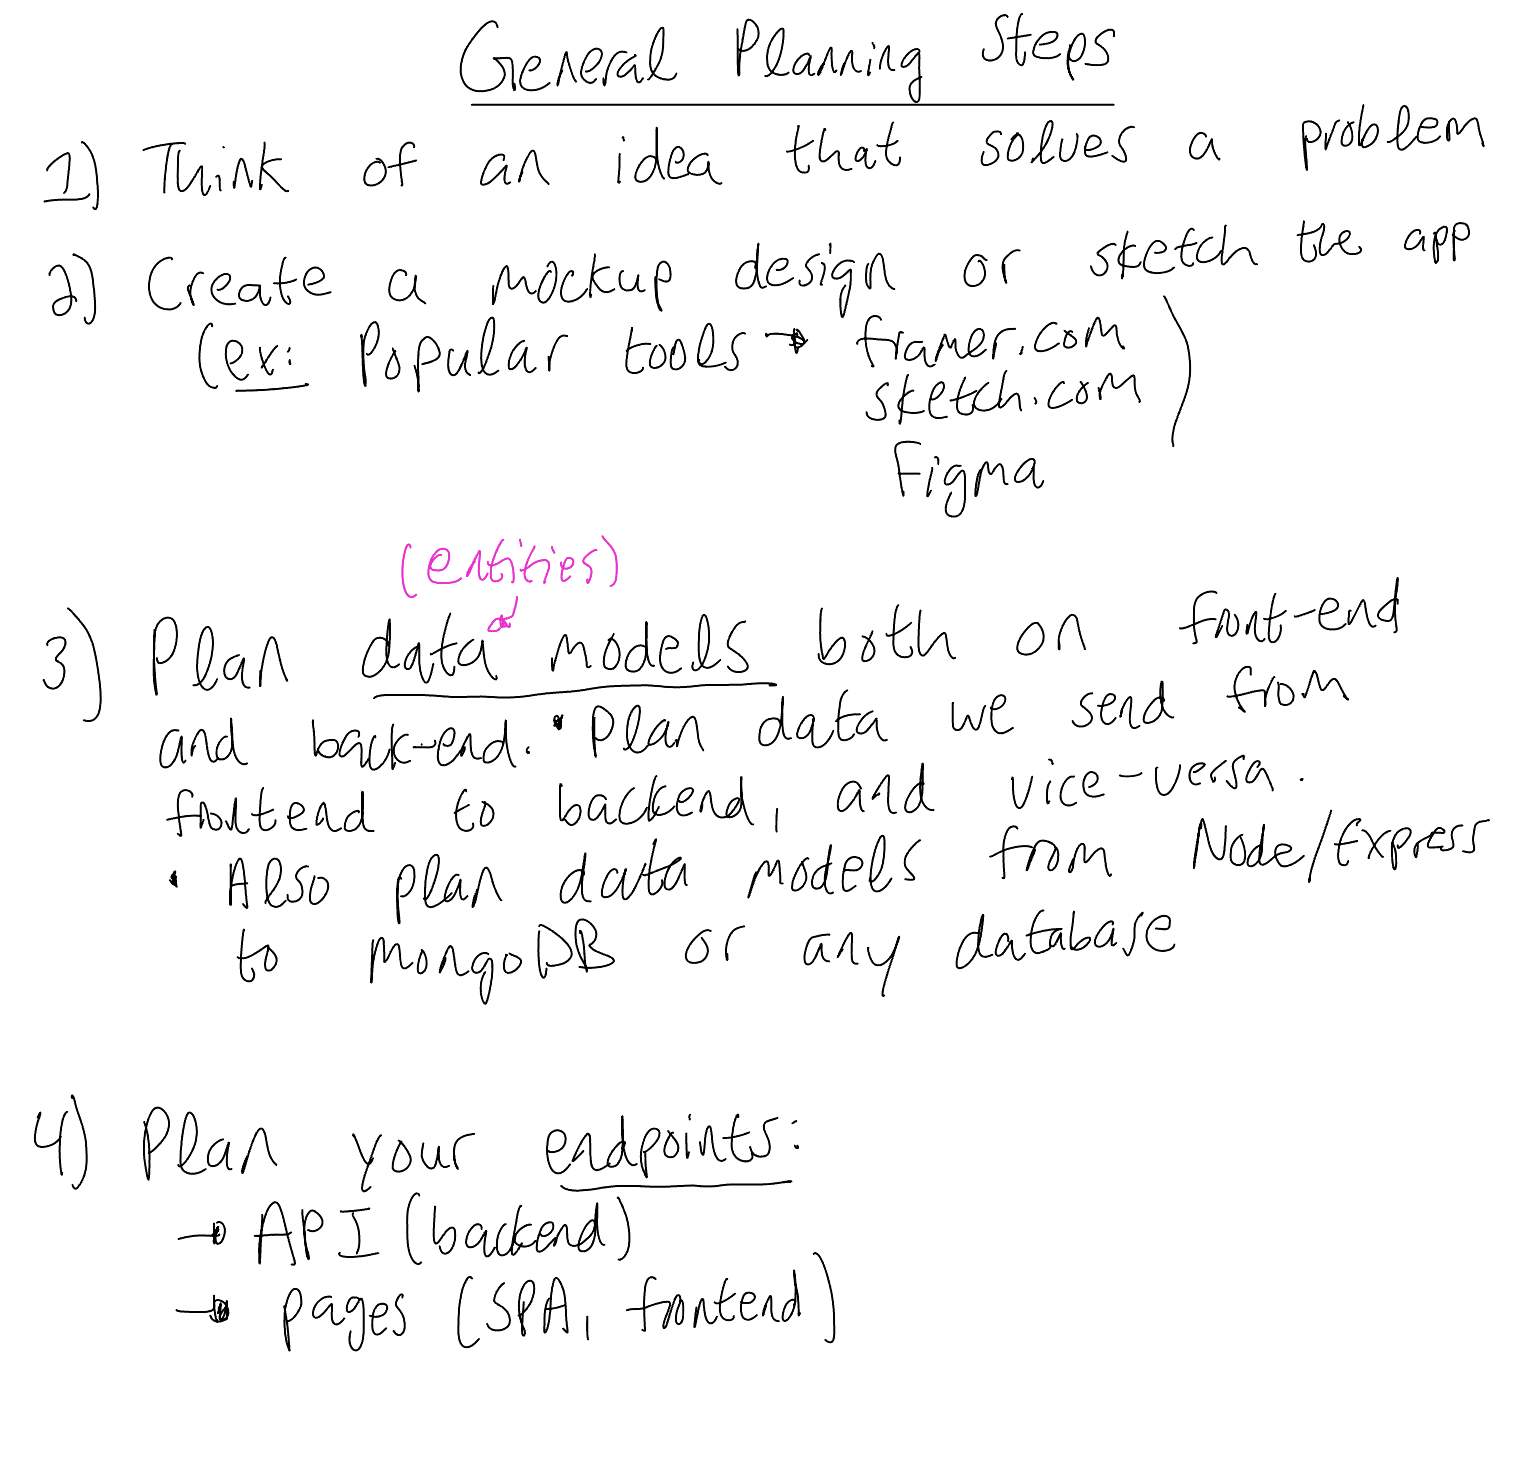 General Planning Steps
1) Think of an idea that solves a problem
2) Create a mockup design or sketch the app
(ex: Popular tools → framer.com
sketch.com)
Figma
(entities)
3) Plan data models both on front-end
and back-end. • Plan data we send from
frontend to backend, and vice-versa.
• Also plan data models from Node/Express
to MongoDB or any database
4) Plan your endpoints:
→ API (backend)
→ pages (SPA, frontend)